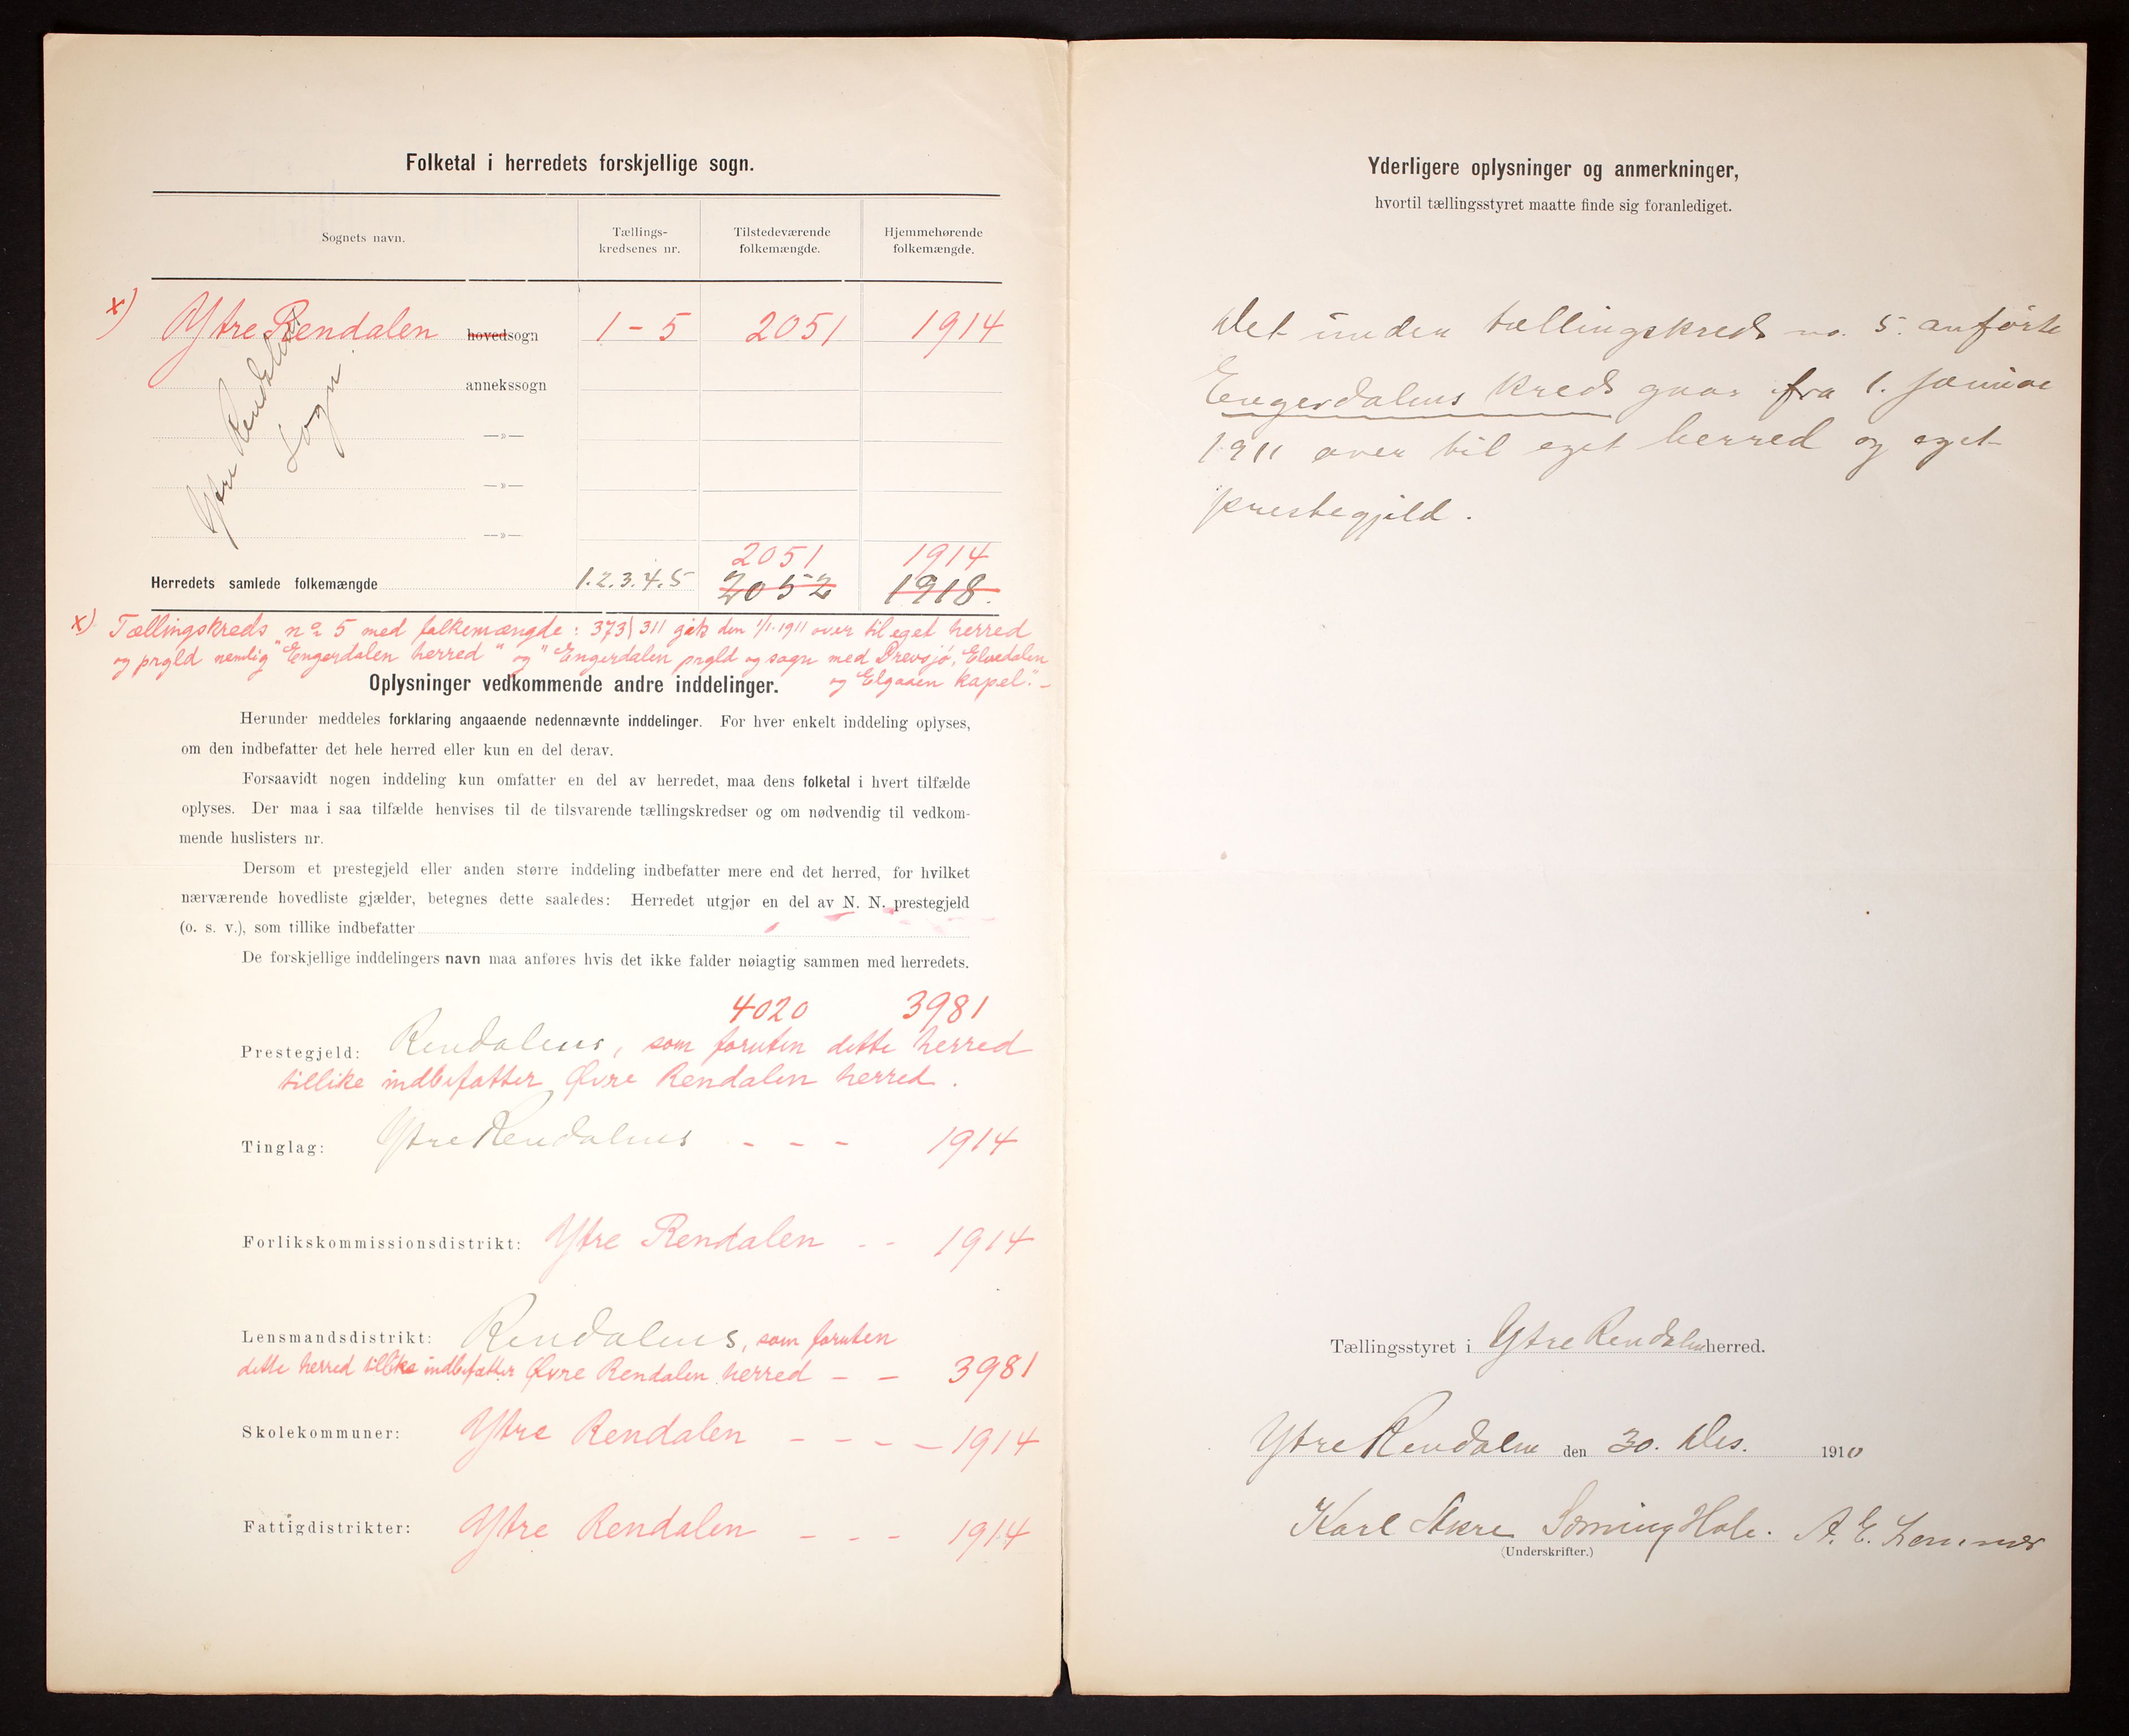 Folketal i herredets forskjellige sogn.
Sognets navn.
Tællings-
kredsenes nr.
Tilstedeværende
folkemængde.
Hjemmehørende
folkemængde.
x) Ytre Rendalen hovedsogn 1-5 2051 1914
annekssogn
Ytre Rendalens
Sogn
—»—
—»—
—»—
2051 1914
Herredets samlede folkemængde 1.2.3.4.5 2052 1918.
x) Tællingskreds no 5 med folkemængde: 373|311 gik den 1/1-1911 over til eget herred
og prgld nemlig "Engerdalen herred" og "Engerdalen prgld og sogn med Drevsjø, Elvedalen
og Elgaaen kapel."-
Oplysninger vedkommende andre inddelinger.
Herunder meddeles forklaring angaaende nedennævnte inddelinger. For hver enkelt inddeling oplyses,
om den indbefatter det hele herred eller kun en del derav.
Forsaavidt nogen inddeling kun omfatter en del av herredet, maa dens folketal i hvert tilfælde
oplyses. Der maa i saa tilfælde henvises til de tilsvarende tællingskredser og om nødvendig til vedkom-
mende huslisters nr.
Dersom et prestegjeld eller anden større inddeling indbefatter mere end det herred, for hvilket
nærværende hovedliste gjælder, betegnes dette saaledes: Herredet utgjør en del av N. N. prestegjeld
(o. s. v.), som tillike indbefatter
De forskjellige inddelingers navn maa anføres hvis det ikke falder nøiagtig sammen med herredets.
4020 3981
Prestegjeld: Rendalens, som foruten dette herred
tillike indbefatter Øvre Rendalen herred.
Tinglag: Ytre Rendalens - - - 1914
Forlikskommissionsdistrikt: Ytre Rendalen - - 1914
Lensmandsdistrikt: Rendalens, som foruten
dette herred tillike indbefatter Øvre Rendalen herred - - 3981
Skolekommuner: Ytre Rendalen - - - - 1914
Fattigdistrikter: Ytre Rendalen - - - 1914
Yderligere oplysninger og anmerkninger,
hvortil tællingsstyret maatte finde sig foranlediget.
Det under tællingskreds no. 5. anførte
Engerdalens kreds gaar fra 1. januar
1911 over til eget herred og eget
prestegjeld.
Tællingsstyret i Ytre Rendalen herred.
Ytre Rendalen den 30. Des. 1910
Karl Akre Hole. A. E.
(Underskrifter.)